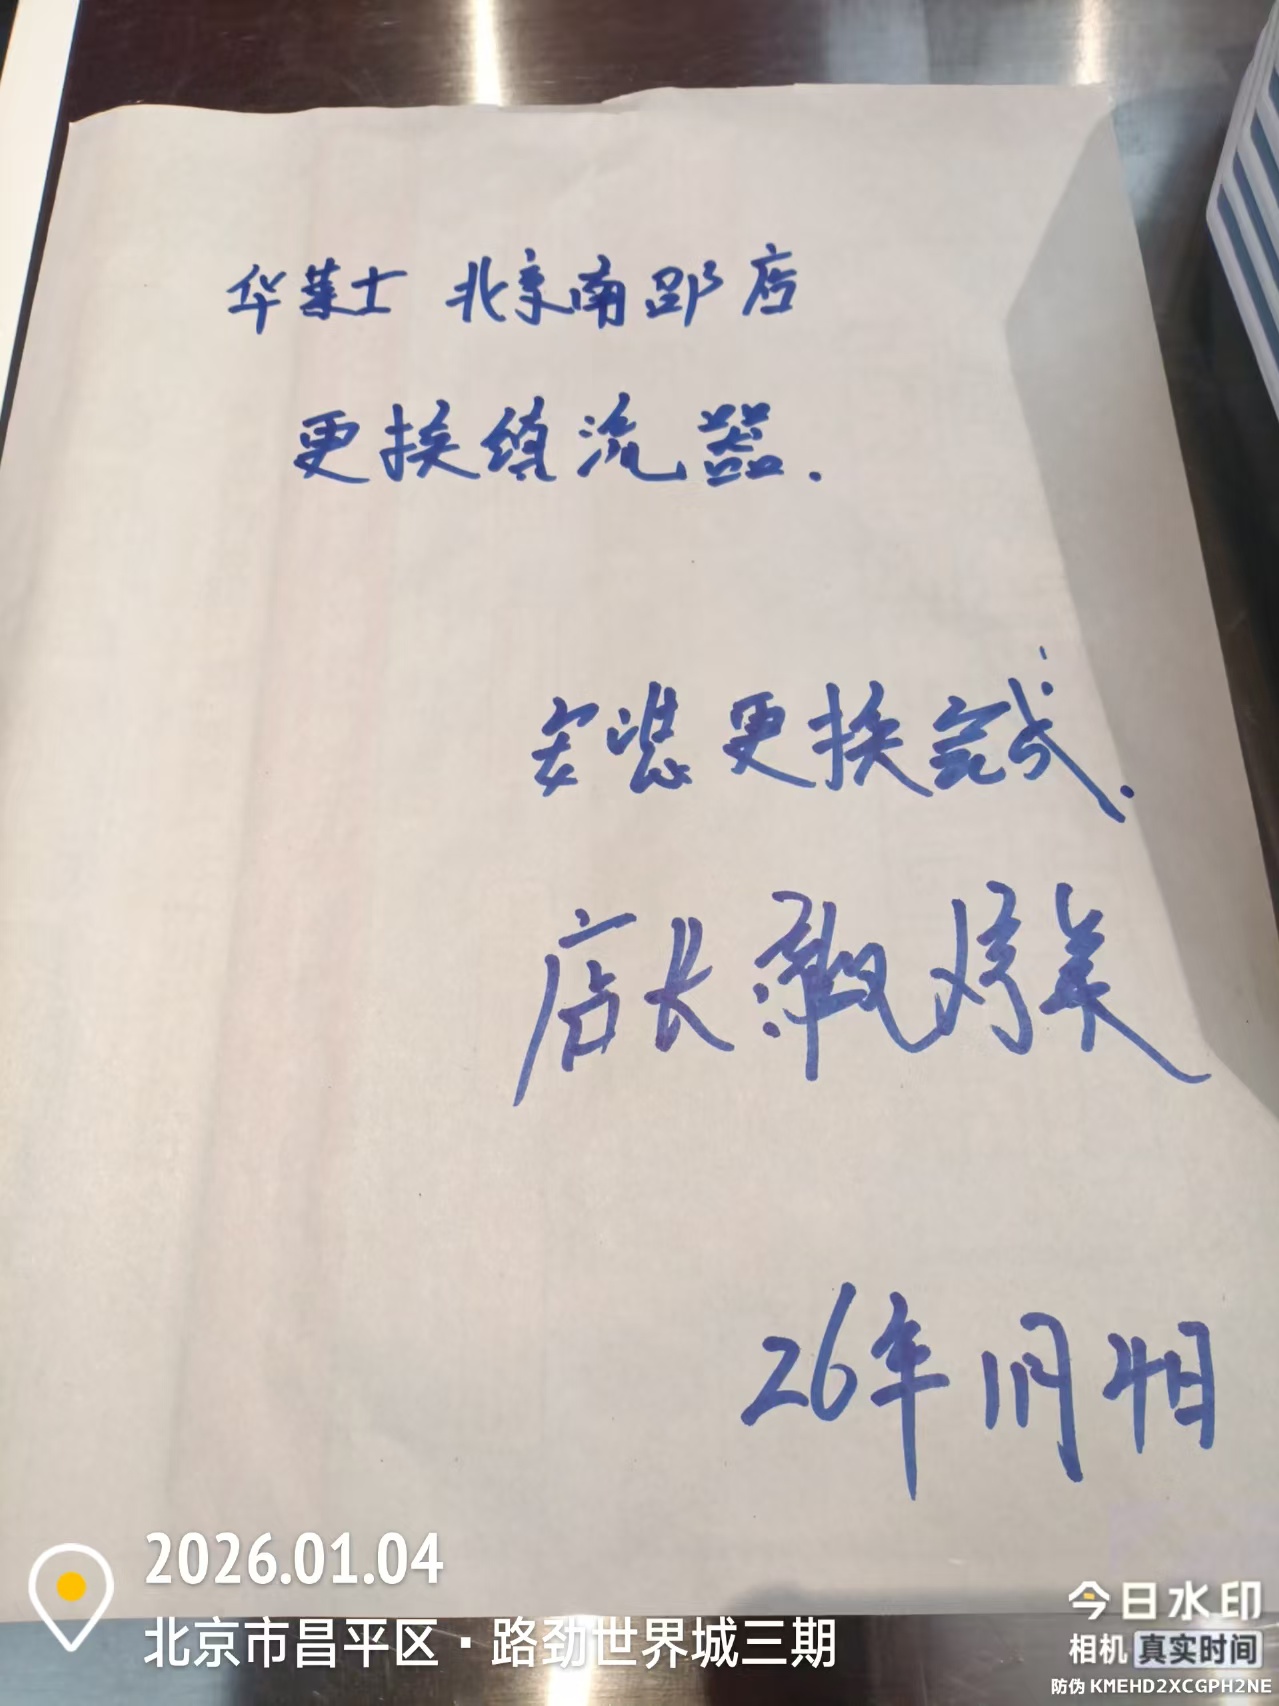 华莱士 北京南邵店
更换镇流器.
安装更换完成.
店长
26年1月4日
2026.01.04
北京市昌平区·路劲世界城三期
今日水印
相机 真实时间
防伪 KMEHD2XCGPH2NE